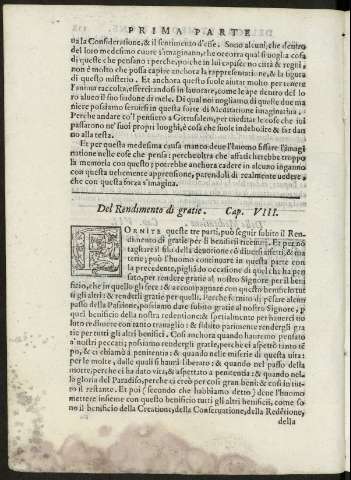 PRIMA PARTE
ua la Consideratione, & il sentimento d'esse. Sono alcuni, che dentro
del loro medesimo imaginano, che occorra qual si uoglia cosa
di queste che pensano: perche, poiche in lui capisce no città & regni,
non è molto che possa capire anchora la rappresentatione, & la figura
di questo misterio. Et anchora questo suole aiutar molto per tenere
l'anima raccolta, essercitandosi in lauorare, come le ape dentro del lo
ro alueo il suo fiadone di mele. Di qual noi uogliamo di queste due ma
niere possiamo seruirci in questa sorte di Meditatione imaginatiua.
Perche andare co'l pensiero a Gierusalem, per meditar le cose che iui
passarono ne' suoi propri luoghi, è cosa che suole indebolire & far dan
no alla testa.
Et per questa medesima causa manco deue l'huomo fissare l'imagi
natione nelle cose che pensa: perche oltra che affatica rebbe troppo
la memoria con questo; potrebbe anchora cadere in alcuno inganno
con questa uehemente apprensione, parendoli di realmente uedere,
che con questa forza s'imagina.
Del Rendimento di gratie. Cap. VIII.
FORNITE queste tre parti, può seguir subito il Ren
dimento di gratie per li benificij riceuuti. Et per nō
tagliare il filo della deuotione cō diuersi affetti, & ma
terie; può l'huomo continuare in questa parte con
la precedente, pigliādo occasione di quel che ha pen
sato, per rendere gratie al nostro Signore per il beni
ficio, che in quello gli fece: & accompagnare con questo beneficio tut
ti gli altri; & rendergli gratie per quelli. Perche fornito di pesare alcun
passo della Passione, possiamo dare subito gratie al nostro Signore, p
quel beneficio della nostra redentione: & spetialmente per hauerci uo
luto redimere con tanto trauaglio: & subito parimente rendergli gra
tie per tutti gli altri benificij. Così ancora quando haueremo pensato
a' nostri peccati; possiamo rendergli gratie, perche ci aspettò tanto tē
po, & ci chiamò a penitentia: & quando nelle miserie di questa uita:
per le molte, dalle quali li hauerà liberato: & quando nel passo della
morte, perche ci ha dato uita, & aspettato a penitentia: & quando nel-
la gloria del Paradiso, perche ci creò per così gran bene: & così in tut-
to il restante. Et poi (secondo che habbiamo detto) deue l'huomo
mettere insieme con questo benificio tutti gli altri benificij, come so
no il benificio della Creatione, della Conseruatione, della Redētione,
della